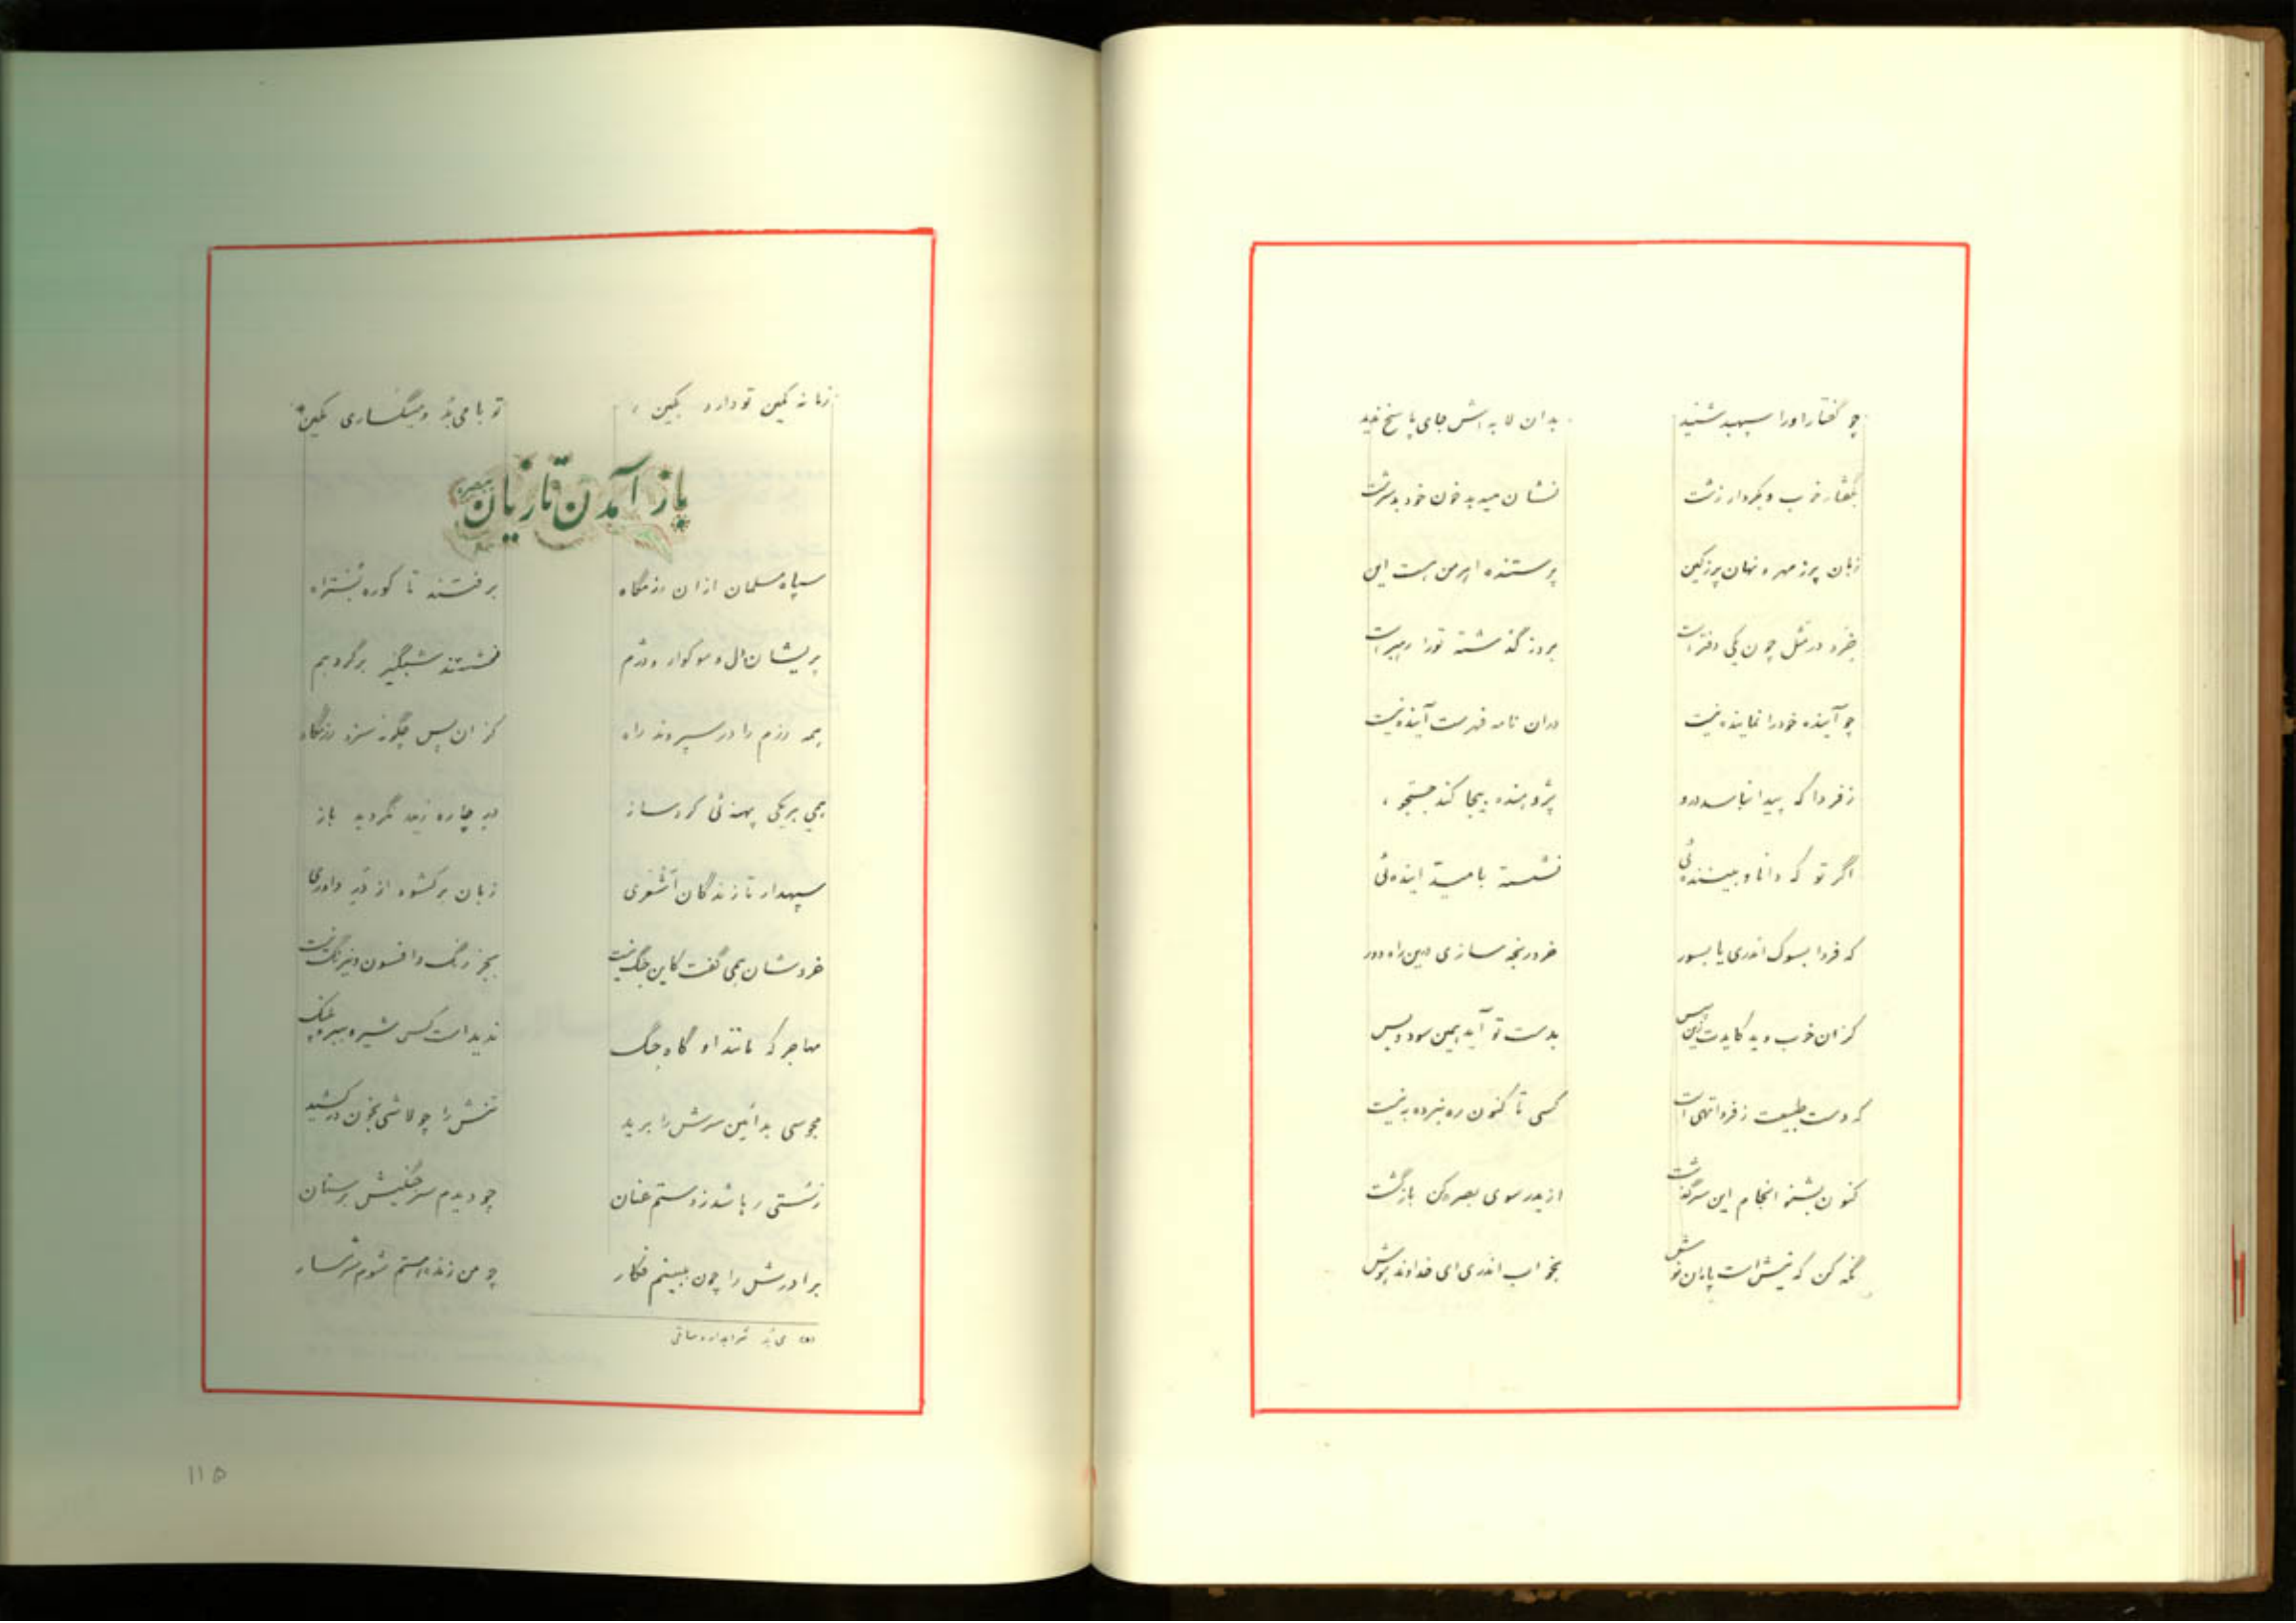 چو گفتار اورا سپهبد شنید بدان لابه اش جای پاسخ ندید
بگفتار خوب و بکردار زشت نشان میدهد خون خود بدسرشت
زبان پرز مهر و نهان پرزکین پرستنده اهرمن هست این
خرد در مثل چون یکی دفتر است بروز گذشته تورا رهبر است
چو آینده خودرا نماینده نیست دران نامه فهرست آینده نیست
زفردا که پیدا نباشد درو پژوهنده بیجا کند جستجو
اگر تو که دانا و بیننده ئی نشسته بامید آینده ئی
که فردا بسوک اندری یا بسور خرد رنجه سازی درین راه دور
کزان خوب و بد کایدت زین سپس بدست تو آید همین سود و بس
که دست طبیعت زفردا تهی است کسی تا کنون ره نبرده به نیست
کنون بشنو انجام این سرگذشت از یدر سوی بصره کن بازگشت
نگه کن که نیش است پایان نوش بخواب اندری ای خداوند هوش
زمانه کمین تو دارد بکین تو با می بد و میگساری مکین
باز آمدن تازیان ببصره
سپاه مسلمان ازان رزمگاه برفتند تا کوره شهتراه
پریشان دل و سوکوار و دژم نشستند شبگیر برگرد هم
همه رزم را در سپردند راه کزان پس چگونه سزد رزمگاه
همی هریکی پهنه ئی کرد ساز در چاره زید نگردید باز
سپهدار تازندگان اشعری زبان برکشود از در داوری
خروشان همی گفت کاین جنگ نیست بجز رنگ و افسون و نیرنگ نیست
مهاجر که مانند او گاه جنگ ندیداست کس شیر و ببر و پلنگ
مجوسی بدآئین سرش را برید تنش را چو لاشی بخون درکشید
زسستی رها شد زدستم عنان چو دیدم سر جنگیش برسنان
برادرش را چون ببینم فکار چو من زنده هستم شوم شرمسار
(۱) می بد شرابدار و ساقی
۱۱۵